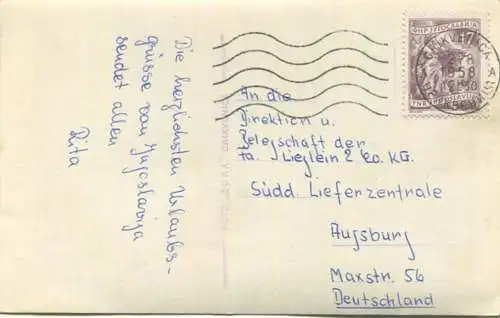 Die herzlichsten Urlaubs-
grüsse von Jugoslavija
sendet allen
Rita
ФНР ЈУГОСЛАВИЈА
CRIKVENICA
1958
An die
Direktion u.
Belegschaft der
Fa. Lieglein & Co. KG.
Südd. Lieferzentrale
Augsburg
Maxstr. 56
Deutschland